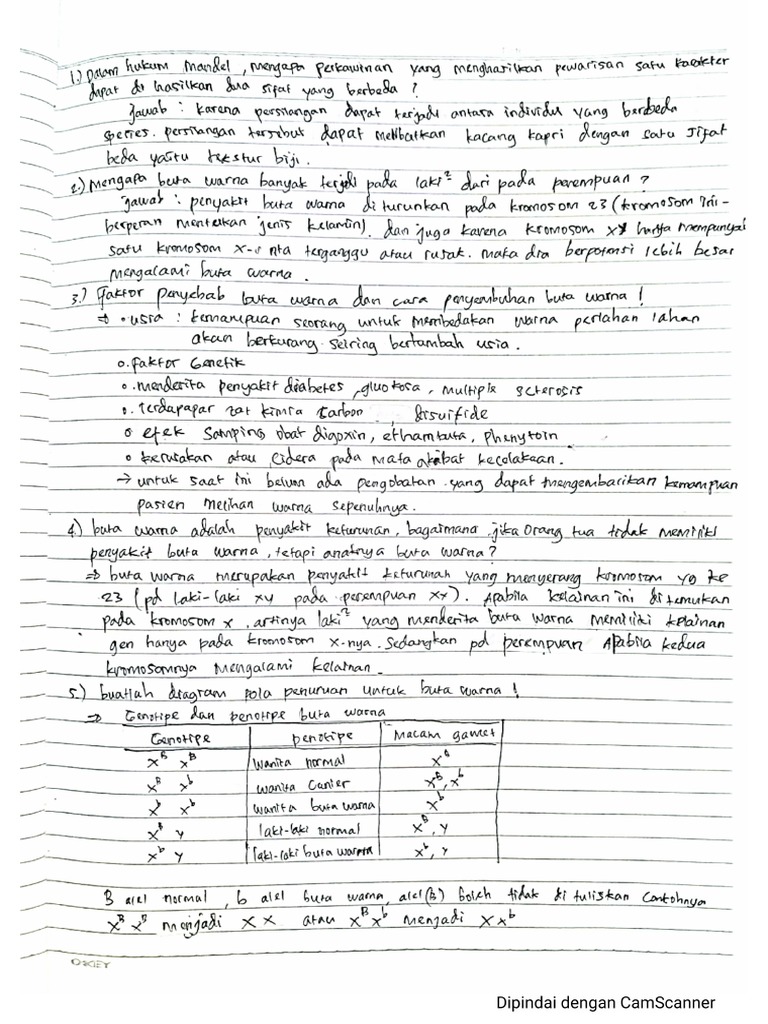 1.) Dalam hukum Mandel, mengapa perkawinan yang menghasilkan pewarisan satu karakter
dapat di hasilkan dua sifat yang berbeda ?
Jawab : karena persilangan dapat terjadi antara individu yang berbeda
species. persilangan tersebut dapat melibatkan kacang kapri dengan satu sifat
beda yaitu tekstur biji.
2.) Mengapa buta warna banyak terjadi pada laki² dari pada perempuan ?
Jawab : penyakit buta warna di turunkan pada kromosom 23 (kromosom ini-
berperan menentukan jenis kelamin). dan juga karena kromosom xy hanya mempunyai
satu kromosom x-s nta terganggu atau rusak. maka dia berpotensi lebih besar
mengalami buta warna.
3.) Faktor penyebab buta warna dan cara penyembuhan buta warna !
→ • usia : kemampuan seorang untuk membedakan warna perlahan lahan
akan berkurang seiring bertambah usia.
o. faktor Genetik
o. menderita penyakit diabetes, glukosa, multiple scterosis
o. Terdapapar zat kimia carbon disulfide
o efek samping obat digoxin, ethambuta, phenytoin
o kerusakan atau cidera pada mata akibat kecolakaan.
→ untuk saat ini belum ada pengobatan yang dapat mengembarikan kemampuan
pasien melihan warna sepenuhnya.
4.) buta warna adalah penyakit keturunan, bagaimana jika orang tua tidak memiliki
penyakit buta warna, tetapi anaknya buta warna ?
⇒ buta warna merupakan penyakit keturunan yang menyerang kromosom yg ke
23 (pd laki-laki xy pada perempuan xx). Apabila kelainan ini di temukan
pada kromosom x, artinya laki² yang menderita buta warna memiliki kelainan
gen hanya pada kromosom x-nya. Sedangkan pd perempuan Apabila kedua
kromosomnya mengalami kelainan.
5.) buatlah diagram pola penuruan untuk buta warna !
⇒ Genotipe dan penotipe buta warna
Genotipe | penotipe | Macam gamet
X^B X^B | wanita normal | X^B
X^B X^b | wanita carier | X^B, X^b
X^b X^b | wanita buta warna | X^b
X^B Y | laki-laki normal | X^B, Y
X^b Y | laki-laki buta warna | X^b, Y
B alel normal, b alel buta warna, alel (B) boleh tidak di tuliskan Contohnya
X^B X^B menjadi X X atau X^B X^b menjadi X X^b
OKEY
Dipindai dengan CamScanner